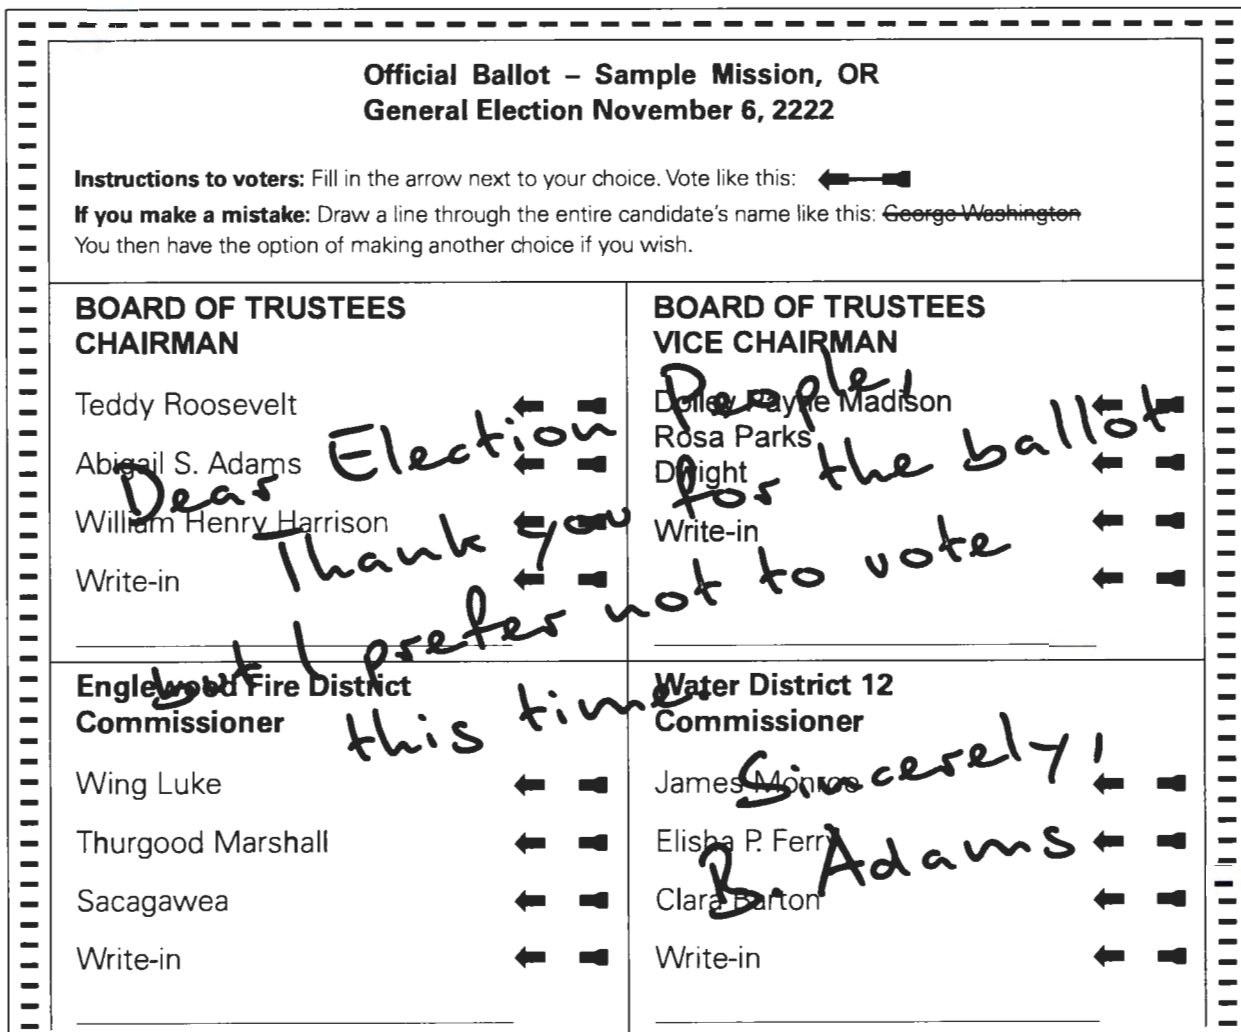 Official Ballot – Sample Mission, OR
General Election November 6, 2222
Instructions to voters: Fill in the arrow next to your choice. Vote like this:
If you make a mistake: Draw a line through the entire candidate's name like this: George Washington
You then have the option of making another choice if you wish.
BOARD OF TRUSTEES
CHAIRMAN
Teddy Roosevelt
Abigail S. Adams
William Henry Harrison
Write-in
BOARD OF TRUSTEES
VICE CHAIRMAN
Dolley Payne Madison
Rosa Parks
Dwight
Write-in
Englewood Fire District
Commissioner
Wing Luke
Thurgood Marshall
Sacagawea
Write-in
Water District 12
Commissioner
James Monroe
Elisha P. Ferry
Clara Barton
Write-in
Dear Election People,
Thank you for the ballot
but I prefer not to vote
this time.
Sincerely,
B. Adams